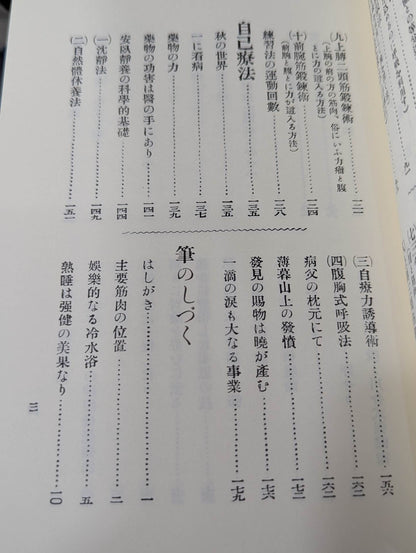 (九)上膊二頭筋鍛鍊術……三二
(上腕の前の方の筋肉、俗にいふ力瘤と腹とに力の這入る方法)
(十)前腕筋鍛鍊術……三四
(前腕と腹とに力が這入る方法)
練習法の運動回數……三八
自己療法……一三五
秋の世界……一三五
一に看病……一三七
藥物の力……一三九
藥物の功害は醫の手にあり……一四一
安臥靜養の科學的基礎……一四四
(一)沈靜法……一四九
(二)自然體休養法……一五一
(三)自療力誘導術……一五六
(四)腹胸式呼吸法……一六二
病父の枕元にて……一六二
薄暮山上の發憤……一七二
發見の賜物は曉が產む……一七六
一滴の淚も大なる事業……一七九
筆のしづく
はしがき……一
主要筋肉の位置……二
娛樂的なる冷水浴……五
熟睡は强健の美果なり……一〇
三